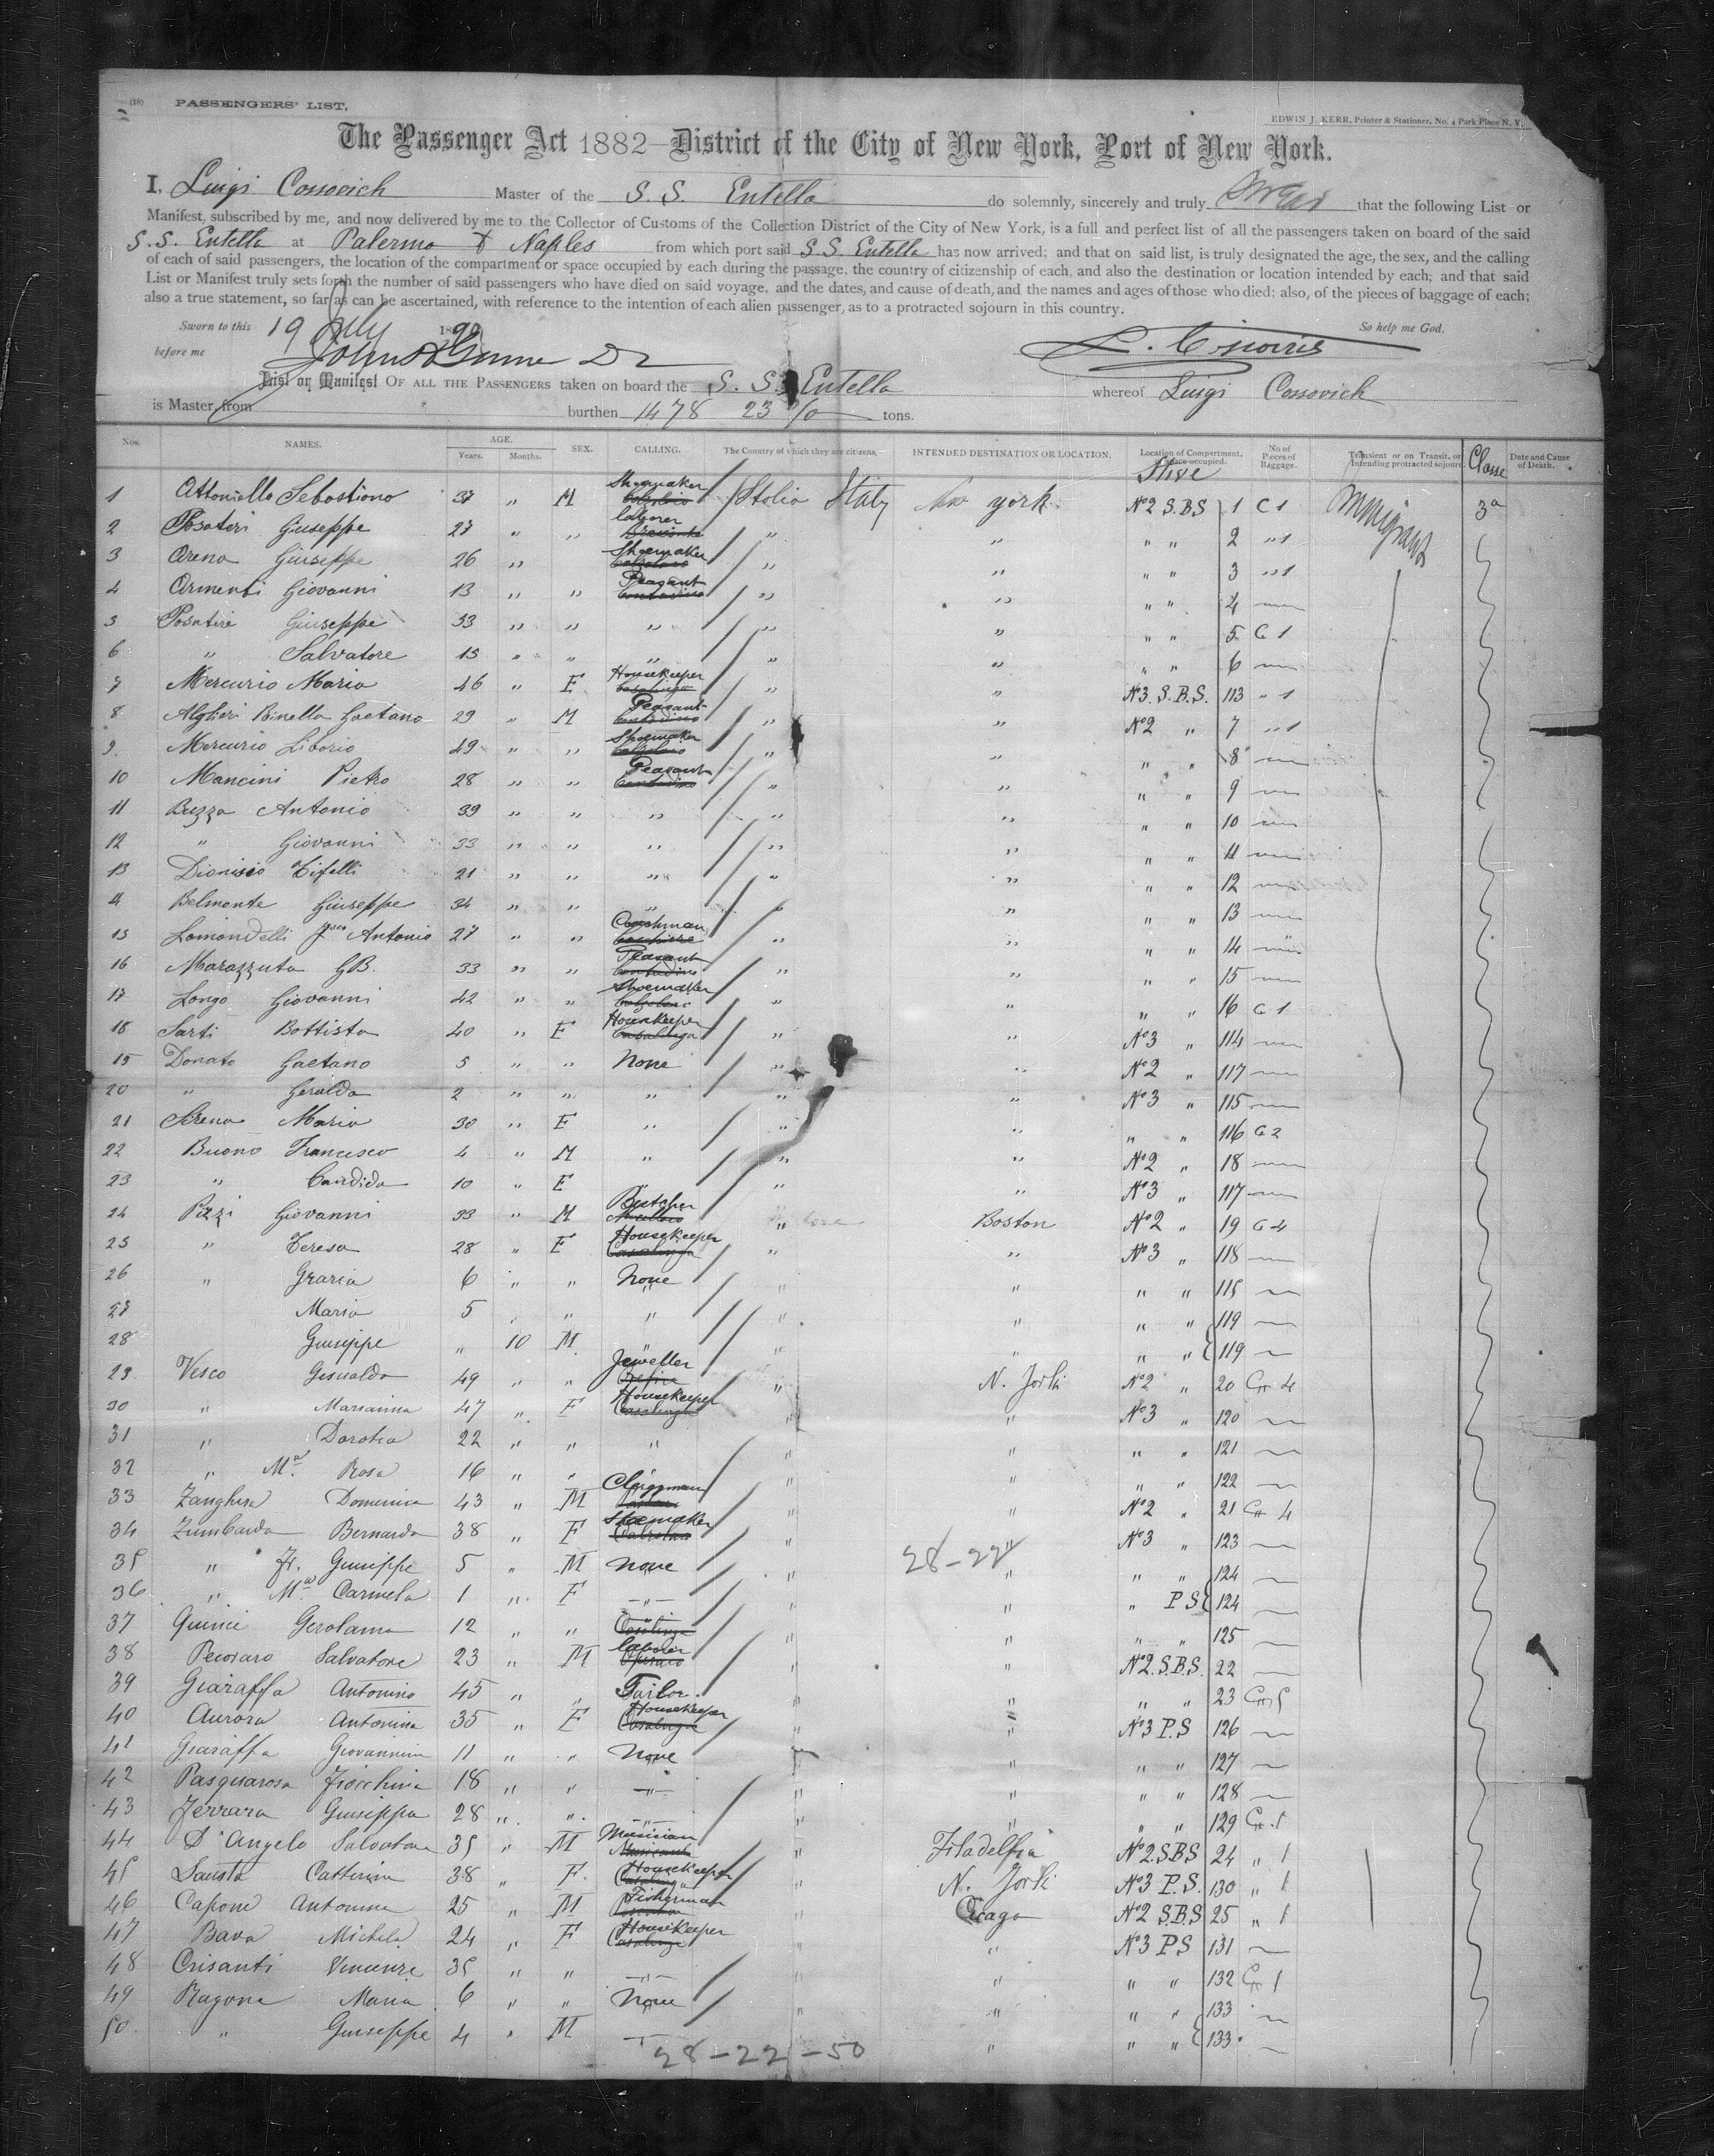 (18) PASSENGERS' LIST.
EDWIN J. KERR, Printer & Stationer, No. 4 Park Place N. Y.
The Passenger Act 1882—District of the City of New York, Port of New York.
I, Luigi Cossovich Master of the S. S. Entella do solemnly, sincerely and truly swear that the following List or
Manifest, subscribed by me, and now delivered by me to the Collector of Customs of the Collection District of the City of New York, is a full and perfect list of all the passengers taken on board of the said
S. S. Entella at Palermo & Naples from which port said S. S. Entella has now arrived; and that on said list, is truly designated the age, the sex, and the calling
of each of said passengers, the location of the compartment or space occupied by each during the passage, the country of citizenship of each, and also the destination or location intended by each; and that said
List or Manifest truly sets forth the number of said passengers who have died on said voyage, and the dates, and cause of death, and the names and ages of those who died; also, of the pieces of baggage of each;
also a true statement, so far as can be ascertained, with reference to the intention of each alien passenger, as to a protracted sojourn in this country.
Sworn to this 19 July 1890 So help me God.
before me
List or Manifest OF ALL THE PASSENGERS taken on board the S. S. Entella whereof Luigi Cossovich
is Master, from burthen 1478 23/00 tons.
Nos. NAMES. AGE. Years. Months. SEX. CALLING. The Country of which they are citizens. INTENDED DESTINATION OR LOCATION. Location of Compartment, or space occupied. No of Pieces of Baggage. Transient or on Transit, or Intending protracted sojourn. Classe Date and Cause of Death.
Stive
1 Attoniello Sebastiano 37 " M Shoemaker Italia Italy New york No 2 S.B.S 1 C 1 Immigrant 3a
2 Posateri Giuseppe 27 " " laborer " " " " 2 " 1
3 Arena Giuseppe 26 " Shoemaker Calzolaio " " " " 3 " 1
4 Armenti Giovanni 13 " " Peasant Contadino " " " " 4
5 Posateri Giuseppe 33 " " " " " " " 5 C 1
6 " Salvatore 15 " " " " " " " 6
7 Mercurio Maria 46 " F Housekeeper Casalinga " " No 3 S.B.S. 113 " 1
8 Alglieri Binella Gaetano 29 " M Peasant Contadino " " No 2 " 7 " 1
9 Mercurio Liborio 49 " " Shoemaker Calzolaio " " " " 8
10 Mancini Pietro 28 " " Peasant Contadino " " " " 9
11 Buzza Antonio 39 " " " " " " " 10
12 " Giovanni 33 " " " " " " " 11
13 Dionisio Tifelli 21 " " " " " " " 12
14 Belmonte Giuseppe 34 " " " " " " " 13
15 Lomondelli Antonio 27 " " Coachman Cocchiere " " " " 14
16 Marazzuta G.B. 33 " " Peasant Contadino " " " " 15
17 Longo Giovanni 42 " " Shoemaker Calzolaio " " " " 16 C 1
18 Sarti Battista 40 " F Housekeeper Casalinga " " No 3 " 114
19 Donato Gaetano 5 " " None " " No 2 " 117
20 " Geralda 2 " " " " " No 3 " 115
21 Sirena Maria 30 " F " " " " " 116 C 2
22 Buono Francesco 4 " M " " " No 2 " 18
23 " Candida 10 " F " " " No 3 " 117
24 Pizzi Giovanni 33 " M Butcher " Boston No 2 " 19 C 4
25 " Teresa 28 " F Housekeeper Casalinga " " No 3 " 118
26 " Grazia 6 " " None " " " " 115
27 Maria 5 " " " " " " " 119
28 Giuseppe " 10 M " " " " " 119
29 Vesco Gesualdo 49 " " Jeweller Orefice " N. Jork No 2 " 20 C 4
30 " Marianna 47 " F Housekeeper Casalinga " " No 3 " 120
31 " Dorotea 22 " " " " " " " 121
32 " Ma Rosa 16 " " " " " " " 122
33 Domenica 43 " M Clergyman " " No 2 " 21 C 4
34 Zumbardo Bernarda 38 " F Shoemaker " " No 3 " 123
35 " Fr. Giuseppe 5 " M None 28-22 " " " " 124
36 " Ma Carmela 1 " F " " " " P S 124
37 Quinci Gerolama 12 " " Casalinga " " " " 125
38 Pecoraro Salvatore 23 " M laborer Operaio " " No 2. S.B.S. 22
39 Giaraffa Antonino 45 " " Tailor " " " " 23 C 5
40 Aurora Antonina 35 " F Housekeeper Casalinga " " No 3 P.S 126
41 Giaraffa Giovannina 11 " " None " " " " 127
42 Pasquarosa Fiocchina 18 " " " " " " " 128
43 Ferrara Giuseppa 28 " " " " " " " 129 C 1
44 D'Angelo Salvatore 35 " M Musician Musicante " Filadelfia No 2 S.B.S 24 " 1
45 Sausta Catterina 38 " F. Housekeeper Casalinga " N. Jork No 3 P.S. 130 " 1
46 Capone Antonino 25 " M Fisherman " Cicago No 2 S.B.S 25 " 1
47 Bava Michela 24 " F Housekeeper Casalinga " " No 3 P S 131
48 Crisanti Vincenza 35 " " " " " " " 132 C 1
49 Ragona Maria 6 " " None " " " " 133
50 " Giuseppe 4 " M " " " 133
28-22-50